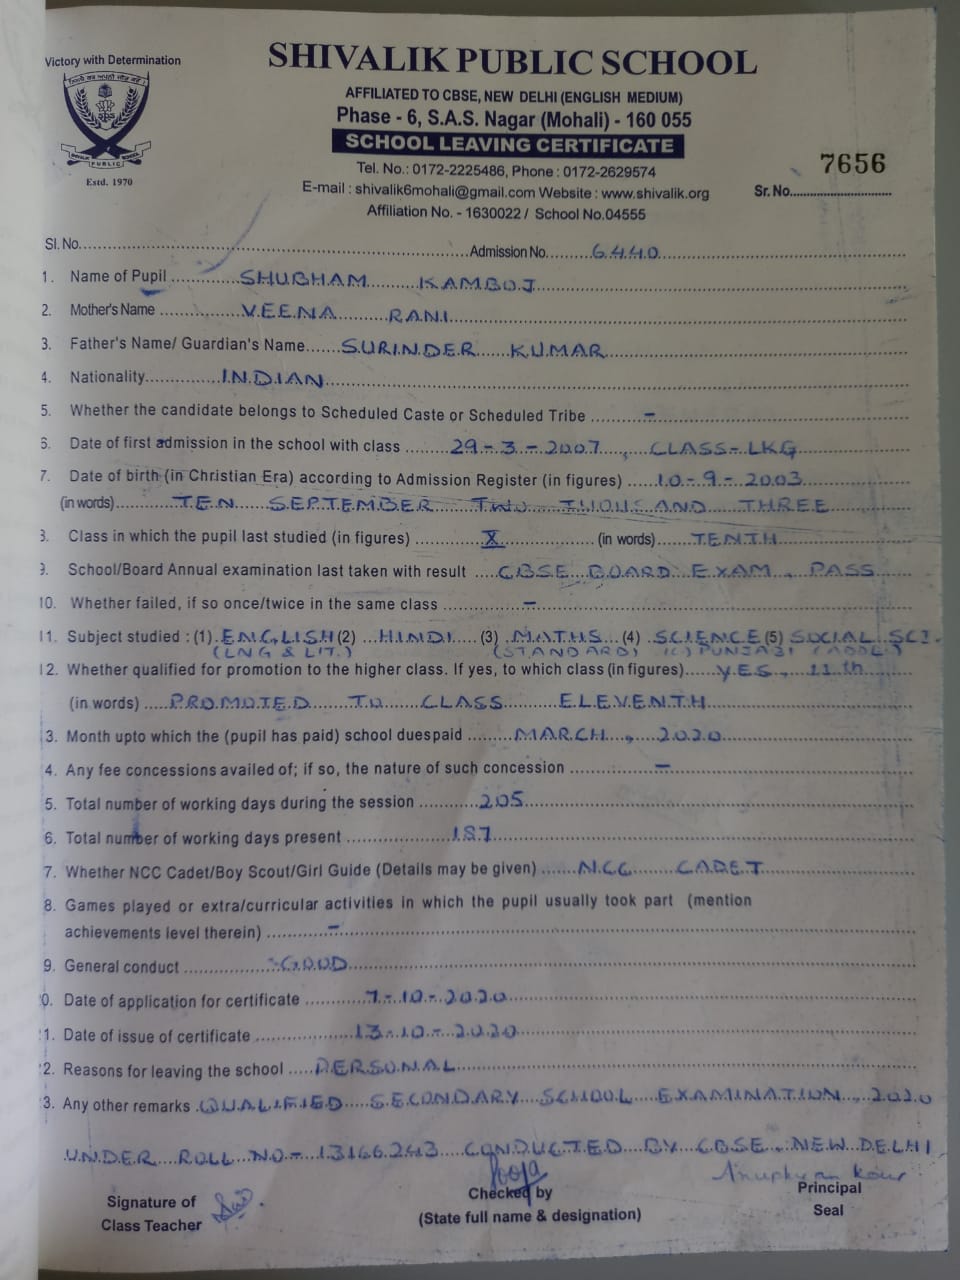 Victory with Determination
SHIVALIK PUBLIC SCHOOL
AFFILIATED TO CBSE, NEW DELHI (ENGLISH MEDIUM)
Phase - 6, S.A.S. Nagar (Mohali) - 160 055
SCHOOL LEAVING CERTIFICATE
Tel. No.: 0172-2225486, Phone : 0172-2629574
E-mail : shivalik6mohali@gmail.com Website : www.shivalik.org
Affiliation No. - 1630022 / School No.04555
SHIVALIK PUBLIC SCHOOL
Estd. 1970
7656
Sr. No.
Sl. No. Admission No. 6440
1. Name of Pupil SHUBHAM KAMBOJ
2. Mother's Name VEENA RANI
3. Father's Name/ Guardian's Name SURINDER KUMAR
4. Nationality INDIAN
5. Whether the candidate belongs to Scheduled Caste or Scheduled Tribe -
6. Date of first admission in the school with class 29-3-2007, CLASS-LKG
7. Date of birth (in Christian Era) according to Admission Register (in figures) 10-9-2003
(in words) TEN SEPTEMBER TWO THOUSAND THREE
8. Class in which the pupil last studied (in figures) X (in words) TENTH
9. School/Board Annual examination last taken with result CBSE BOARD EXAM, PASS
10. Whether failed, if so once/twice in the same class -
11. Subject studied : (1) ENGLISH (2) HINDI (3) MATHS (4) SCIENCE (5) SOCIAL SCI.
(LNG & LIT.) (STANDARD) (6) PUNJABI (ADDL)
12. Whether qualified for promotion to the higher class. If yes, to which class (in figures) YES, 11th
(in words) PROMOTED TO CLASS ELEVENTH
3. Month upto which the (pupil has paid) school duespaid MARCH, 2020
4. Any fee concessions availed of; if so, the nature of such concession -
5. Total number of working days during the session 205
6. Total number of working days present 187
7. Whether NCC Cadet/Boy Scout/Girl Guide (Details may be given) NCC CADET
8. Games played or extra/curricular activities in which the pupil usually took part (mention
achievements level therein) -
9. General conduct GOOD
0. Date of application for certificate 7-10-2020
1. Date of issue of certificate 13-10-2020
2. Reasons for leaving the school PERSONAL
3. Any other remarks QUALIFIED SECONDARY SCHOOL EXAMINATION, 2020
UNDER ROLL NO- 13166243 CONDUCTED BY CBSE, NEW DELHI
Pooja
Signature of Checked by Principal
Class Teacher (State full name & designation) Seal